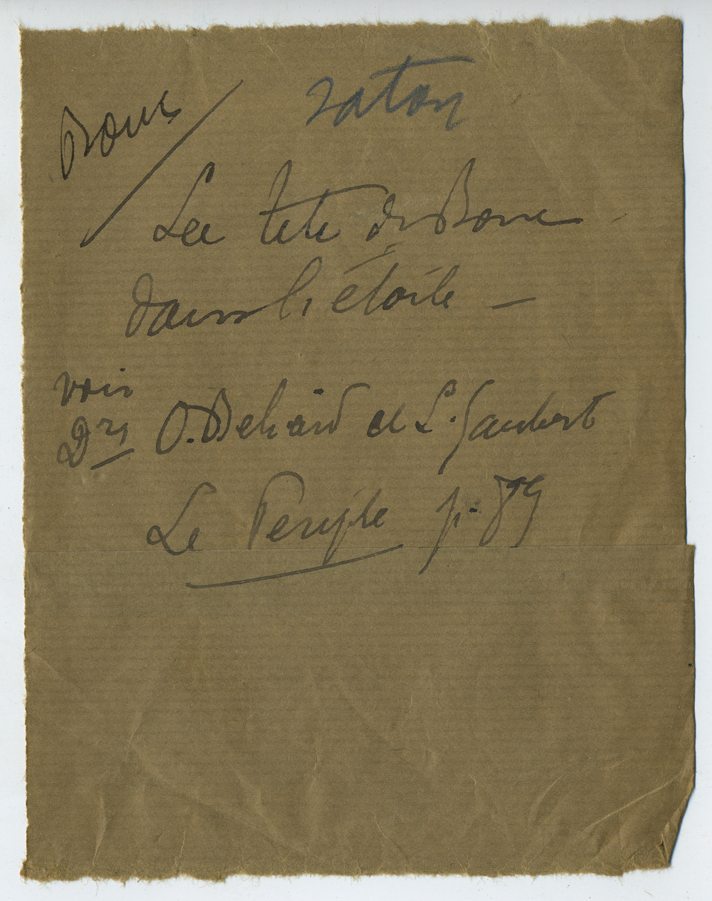 Bouc
Satan
La tete du Bouc
dans l'étoile –
voir
Drs O. Behard et L. Gaubert
Le Periple p. 89